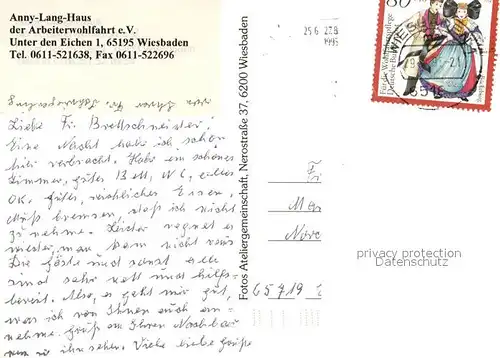 Anny-Lang-Haus
der Arbeiterwohlfahrt e.V.
Unter den Eichen 1, 65195 Wiesbaden
Tel. 0611-521638, Fax 0611-522696
Liebe Fr. Brettschneider!
Eine Nacht habe ich schon
hier verbracht. Habe ein schönes
Zimmer, gutes Bett, WC, alles
OK. Gutes, reichliches Essen,
Muß bremsen, daß ich nicht
zunehme. Leider regnet es
wieder, man kann nicht raus
Die Gäste und sonst alle
sind sehr nett und hilfs-
bereit. Also, es geht mir gut,
was ich von Ihnen auch an-
nehme. Grüß an Ihren Nachbar
wenn Sie ihn sehen. Viele liebe Grüße
Fotos Ateliergemeinschaft, Nerostraße 37, 6200 Wiesbaden
80
Für die Wohlfahrtspflege
Deutsche Bundespost
WIESB
65719
privacy protection
Datenschutz